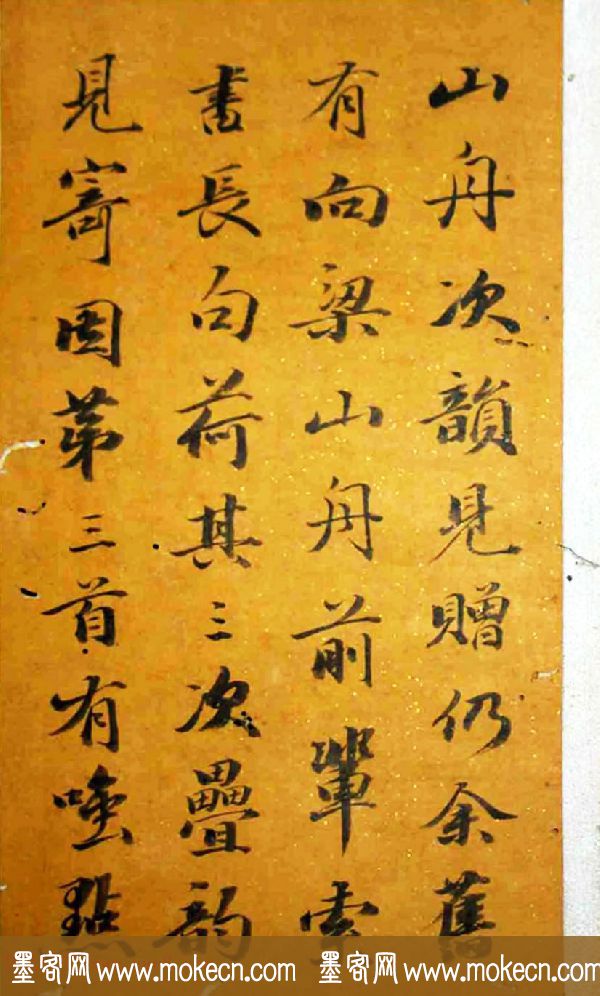 山舟次韻見贈仍余舊
有向梁山舟前輩索
書長句荷其三次疊韵
見寄因第三首有嗤點
墨客网 www.mokecn.com 墨客网 www.mokecn.com